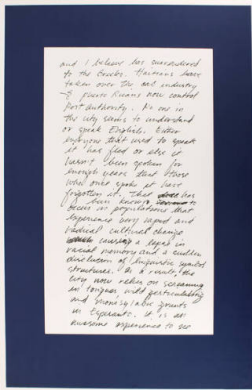 and I believe has surrendered
to the Czechs. Haitians have
taken over the oil industry
& Puerto Ricans now control
Port authority. No one in
the city seems to understand
or speak English. Either
everyone that used to speak
it has fled or else it
hasn't been spoken for
enough years that those
who once spoke it have
forgotten it. That does has
been known to
occur in populations that
experience very rapid and
radical cultural change
causing a lapse in
racial memory and a sudden
dissolution of linguistic symbol
structures. As a result, the
city now relies on screaming
in tongues, wild gesticulating
and monosyllabic grunts
in Esperanto. It is an
awesome experience to see